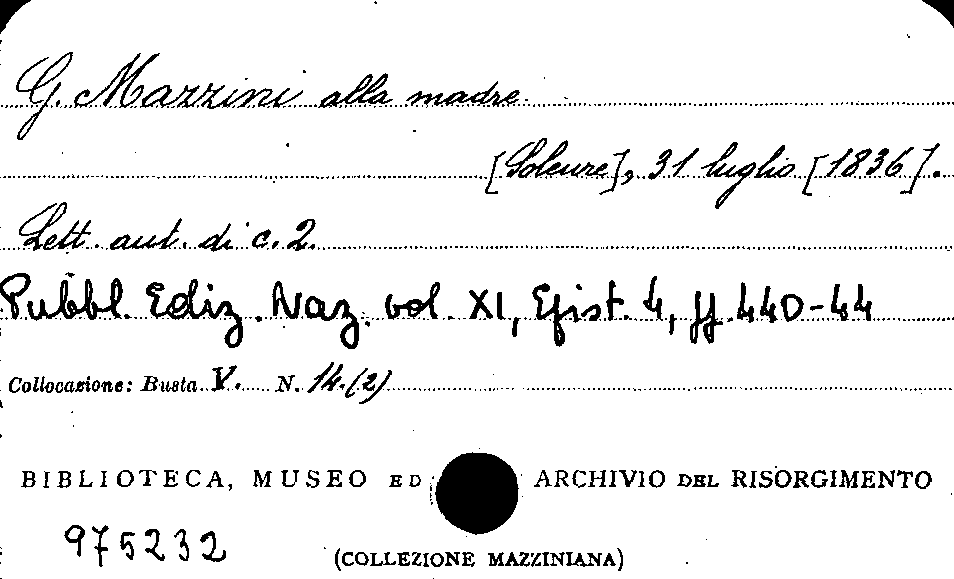 G. Mazzini alla madre
[Soleure], 31 luglio [1836].
Lett. aut. di c. 2.
Pubbl. Ediz. Naz. vol. XI, Epist. 4, pp. 440-44
Collocazione: Busta V. N. 14.(2)
BIBLIOTECA, MUSEO ED ARCHIVIO DEL RISORGIMENTO
975232
(COLLEZIONE MAZZINIANA)